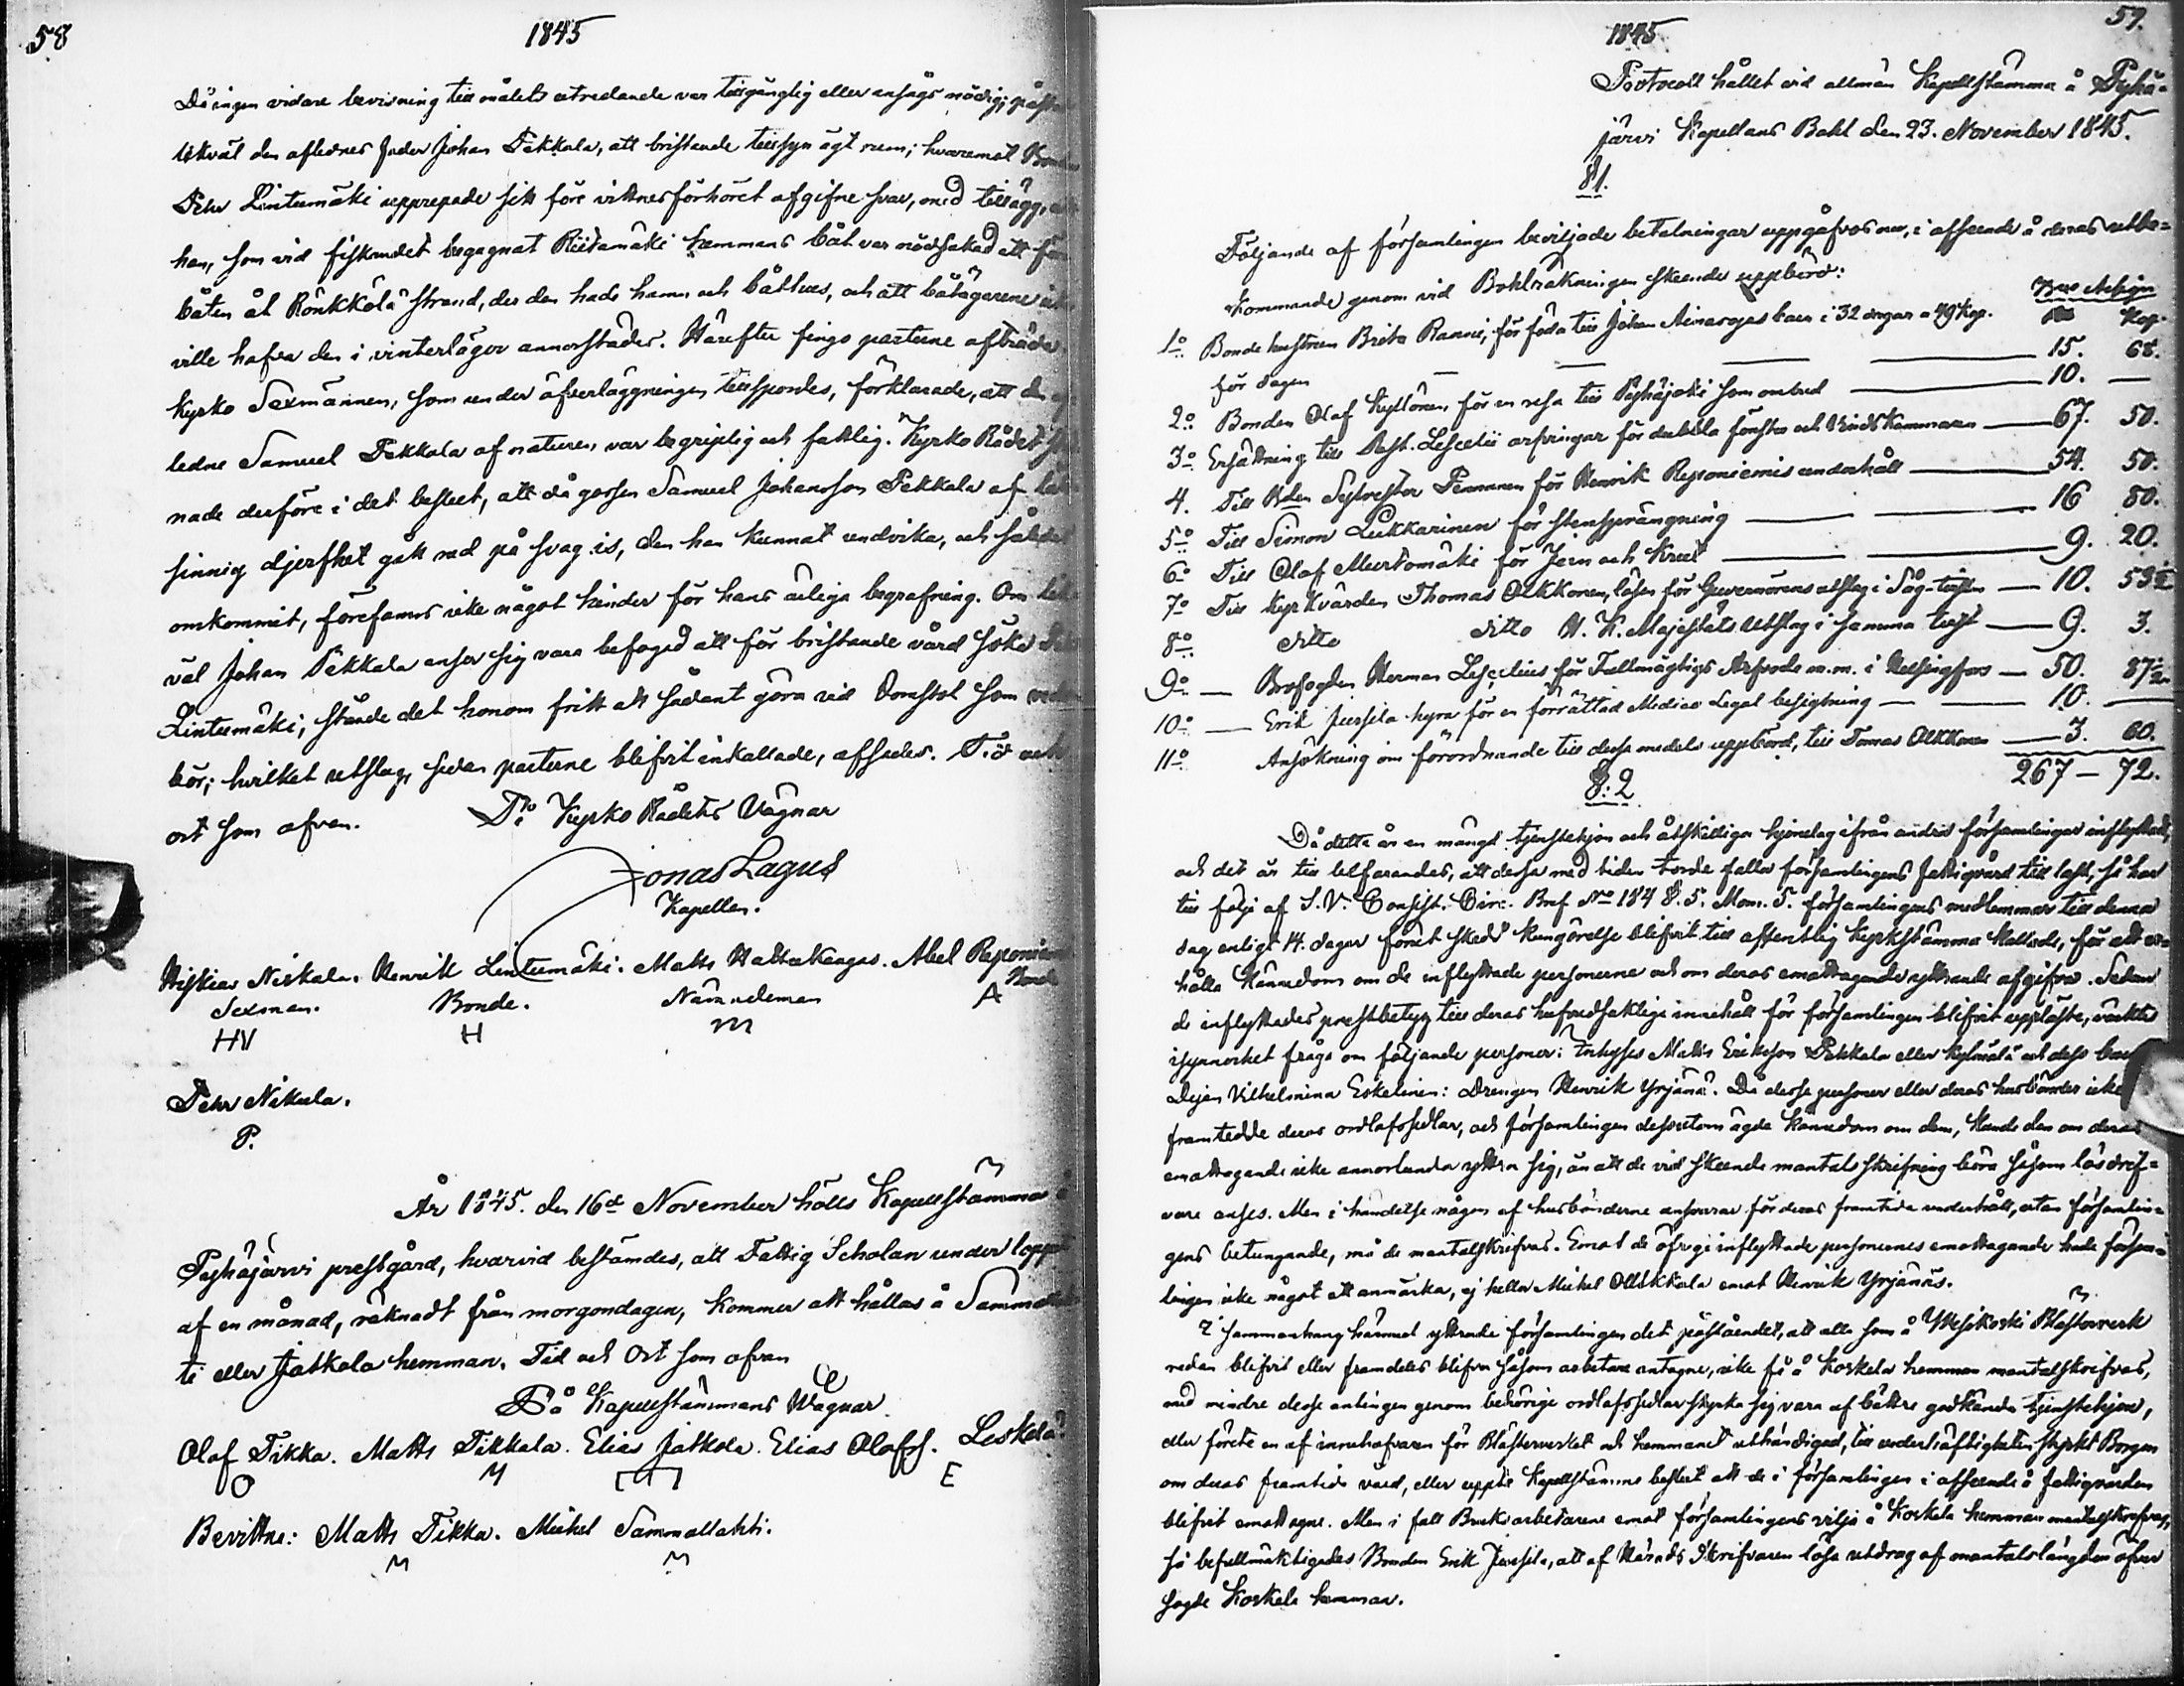 58
1845
Då ingen vidare bevisning till målets utredande var tillgänglig eller ansågs nödig,
likväl den aflednes fader Johan Pekkala, att bristande tillsyn ägt rum; hvaremot
Pehr Lintumäki upprepade sitt före vittnesförhöret afgifne svar, med tillägg,
han, som vid fiskandet begagnat Riitamäki hemmans båt var nödsakad att
båten åt Rönkkölä strand, der den hade hamn och båthus, och att båtägarene
ville hafva den i vinterläger annorstädes. Härefter fingo parterne afträda
Kyrko Sexmännen, som under öfverläggningen tillspordes, förklarade, att den
ledne Samuel Pekkala af naturen var begriplig och fattlig. Kyrko Rådet
nade derföre i det beslut, att då gossen Samuel Johansson Pekkala af
sinnig djerfhet gått ned på svag is, den han kunnat undvika, och således
omkommit, förefanns icke något hinder för hans ärliga begrafning. Om
väl Johan Pekkala anser sig vara befogad att för bristande vård söka
Lintumäki, stånde det honom fritt att sådant göra vid Domstol som
bör; hvilket utslag, sedan parterne blifvit inkallade, afsades. Tid och
ort som ofvan. På Kyrko Rådets Vägnar
Jonas Lagus
Kapellan.
Hiskias Niskala. Henrik Lintumäki. Matts Hattukangas. Abel
Sexman. Bonde. Nämndeman
HV H M A
Pehr Nikula.
P.
År 1845. den 16de November hölls Kapellstämma
Pyhäjärvi prestgård, hvarvid bestämdes, att Fattig Scholan under
af en månad, räknadt från morgondagen, kommer att hållas å
ti eller Jatkola hemman. Tid och Ort som ofvan
På Kapellstämmans Wägnar
Olof Tikka. Matts Tikkala. Elias Jatkola. Elias Olofs. Leskelä.
O M E
Bevittna: Matts Tikka. Michel Sammallahti.
M M
59.
1845
Protocoll hållet vid allmän Kapellstämma å Pyhä-
järvi Kapellans Bohl den 23. November 1845.
§1.
Följande af församlingen beviljade betalningar uppgåfvos nu, i afseende å deras utbe-
kommande genom vid Bohlräkningen skeende uppbörd:
Kop.
1o Bonde hustrun Brita Ranni, för föda till Johan barn i 32 dagar a 49 Kop.
för dagen — — — 15. 68.
2o Bonden Olof Kyllönen för en resa till Pyhäjoki som ombud — 10. —
3o Ersättning till Past. Lescelii arfvingar för dubbla fönster och Vindskammaren — 67. 50.
4. Till Bden Sylvester Penttinen för Henrik Reponiemis underhåll — 54. 50.
5o Till Simon Lukkarinen för stensprängning — 16 80.
6o Till Olof Murtomäki för Jern och Krut — 9. 20.
7o Till Kyrkvärden Thomas Olkkonen, lösen för Guvernörens utslag i Såg-tvisten — 10.
8o ditto ditto H. K. Majestäts Utslag i samma tvist — 9. 3.
9o — Brofogden Herman Lescelius, för Fullmägtigs Arfvode m.m. i Helsingfors — 50.
10o — Erik Jussila hyra för en förrättad Medico Legal besigtning — 10. —
11o Ansökning om förordnande till dessa medels uppbörd, till Tomas Olkkonen — 3. 60.
267 — 72.
§:2
Då detta år en mängd tjenstehjon och åtskilliga hjonelag ifrån andra församlingar inflyttat,
och det är till befarandes, att dessa med tiden torde falla församlingens fattigvård till last, så har
till följe af S.V. Consist. Circ. Bref No 184 §. 5. Mom. 5. församlingens medlemmar till denna
dag enligt 14. dagar förut skedd kungörelse blifvit till offentlig kyrkstämma kallade, för att er-
hålla kännedom om de inflyttade personerne och om deras emottagande yttrande afgifva. Sedan
de inflyttades prestbetyg till deras hufvudsakliga innehåll för församlingen blifvit uppläste, väcktes
isynnerhet fråga om följande personer: Inhyses Matts Eriksson Pekkala eller Kylmälä och dess
Dejan Vilhelmina Eskelinen: Drengen Henrik Yrjänä. Då desse personer eller deras husbönder icke
framtedde deras orlofssedlar, och församlingen dessutom ägde kännedom om dem, kunde den om deras
emottagande icke annorlunda yttra sig, än att de vid skeende mantalsskrifning böra såsom lösdrif-
vare anses. Men i händelse någon af husbönderne ansvarar för deras framtida underhåll, utan församlin-
gens betungande, må de mantalsskrifvas. Emot de öfriga inflyttade personernes emottagande hade försam-
lingen icke något att anmärka, ej heller Michel Ollikkala emot Henrik Yrjänäs.
I sammanhang härmed yttrade församlingen det påståendet, att alla som å Vesikoski Blästerverk
redan blifvit eller framdeles blifva såsom arbetare antagne, icke få å Koskela hemman mantalsskrifvas,
med mindre desse antingen genom behörige orlofssedlar styrka sig vara af bättre godkända tjenstehjon,
eller förete en af innehafvaren för Blästerverket och hemmanet uthändigad, till vederhäftigheten styrkt Borgen
om deras framtida vård, eller uppte Kapellstämmo beslut att de i församlingen i afseende å fattigvården
blifvit emottagne. Men i fall Bruksarbetarene emot församlingens vilja å Koskela hemman mantalsskrefves,
så befullmäktigades Bonden Erik Jussila, att af Härads Skrifvaren lösa utdrag af mantalslängden öfver
sagde Koskela hemman.